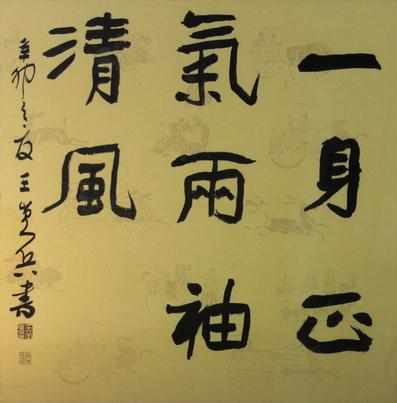 一身正
氣兩袖
清風
辛卯之王兵書